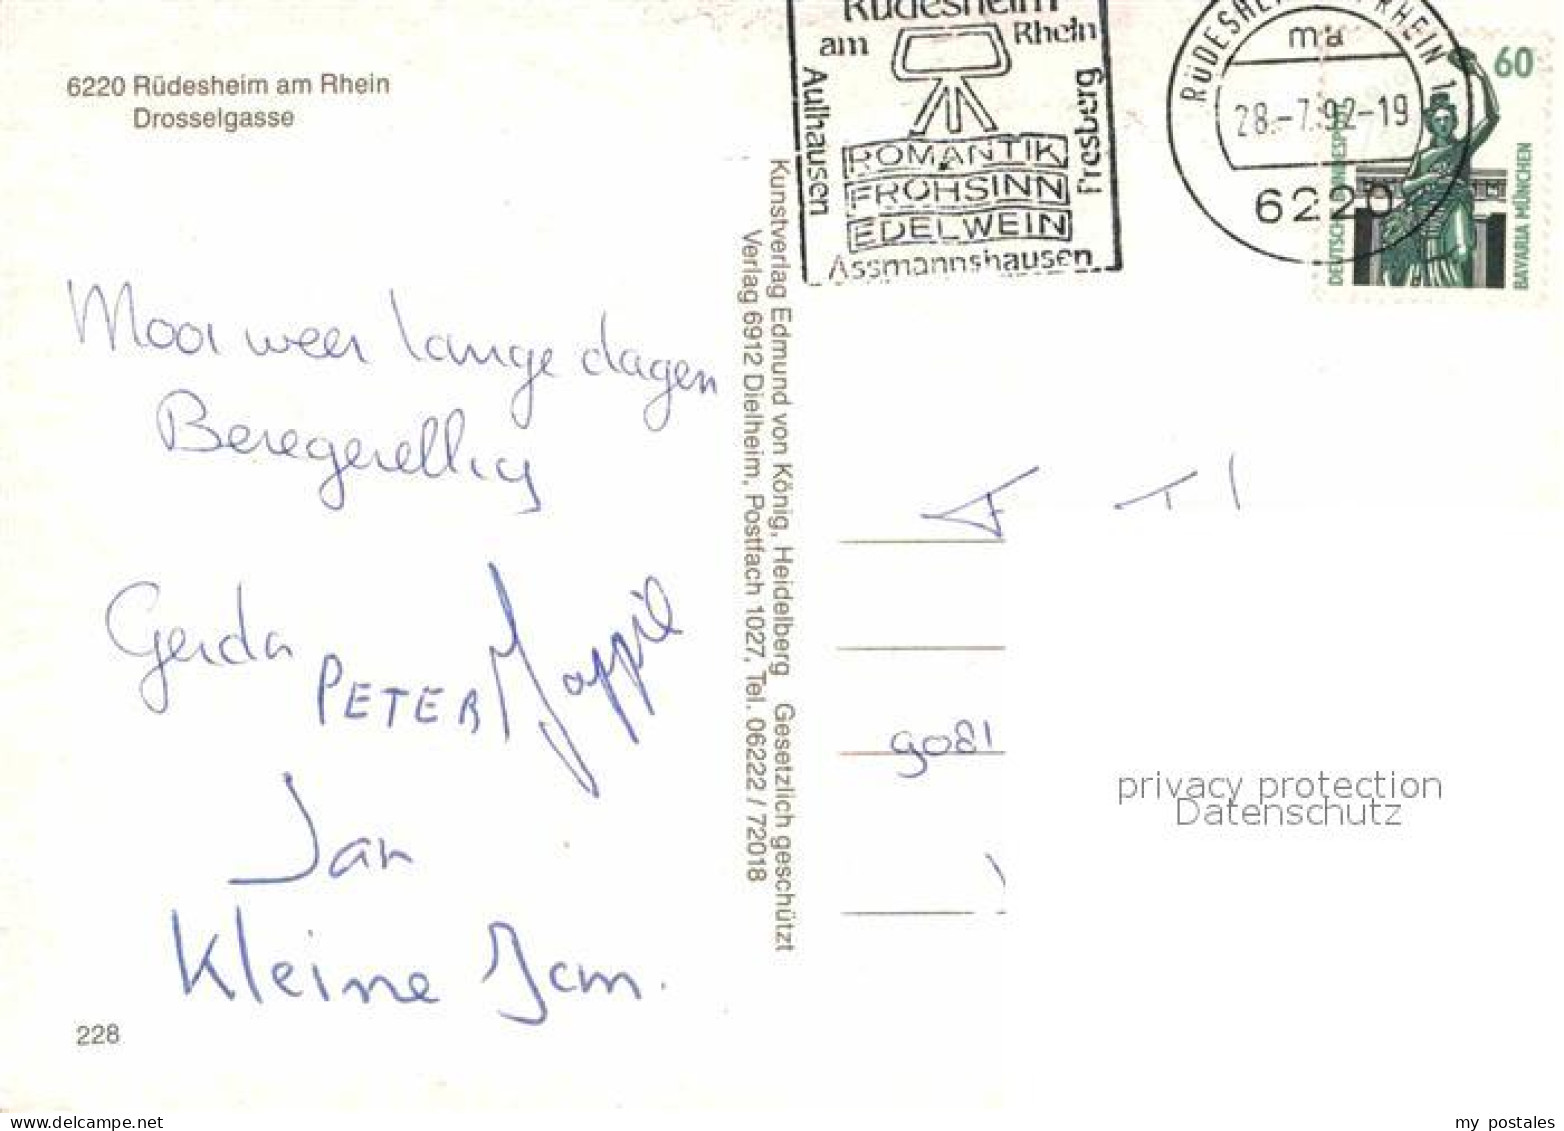 6220 Rüdesheim am Rhein
Drosselgasse
Mooi weer lange dagen
Beregezellig
Gerda
PETER
Jan
Kleine Jan.
228
Kunstverlag Edmund von König, Heidelberg Gesetzlich geschützt
Verlag 6912 Dielheim, Postfach 1027, Tel. 06222 / 72018
Rüdesheim
am Rhein
Aulhausen
Presberg
ROMANTIK
FROHSINN
EDELWEIN
Assmannshausen
RÜDESHEIM AM RHEIN 1
ma
28.-7.92-19
6220
60
DEUTSCHE BUNDESPOST
BAVARIA MÜNCHEN
9081
privacy protection
Datenschutz
my postales